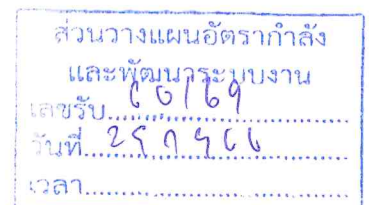 ส่วนวางแผนอัตรากำลัง
และพัฒนาระบบงาน
เลขรับ
วันที่
เวลา